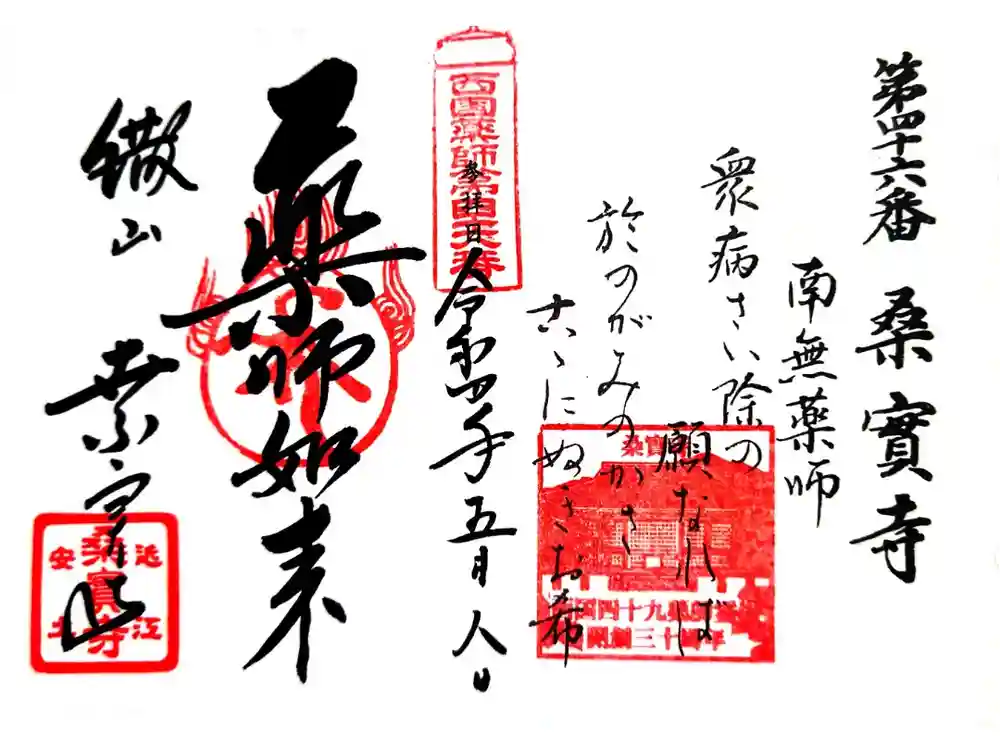 第四十六番 桑實寺
南無薬師
衆病さい除の
願なれば
於のがみのかさ
古ゝにぬぎお希
西國薬師第四十六番
参拝日
令和四年五月八日
薬師如来
繖山
桑實寺
桑實寺
近江
安土
桑實寺
西国四十九薬師霊場
開創三十周年